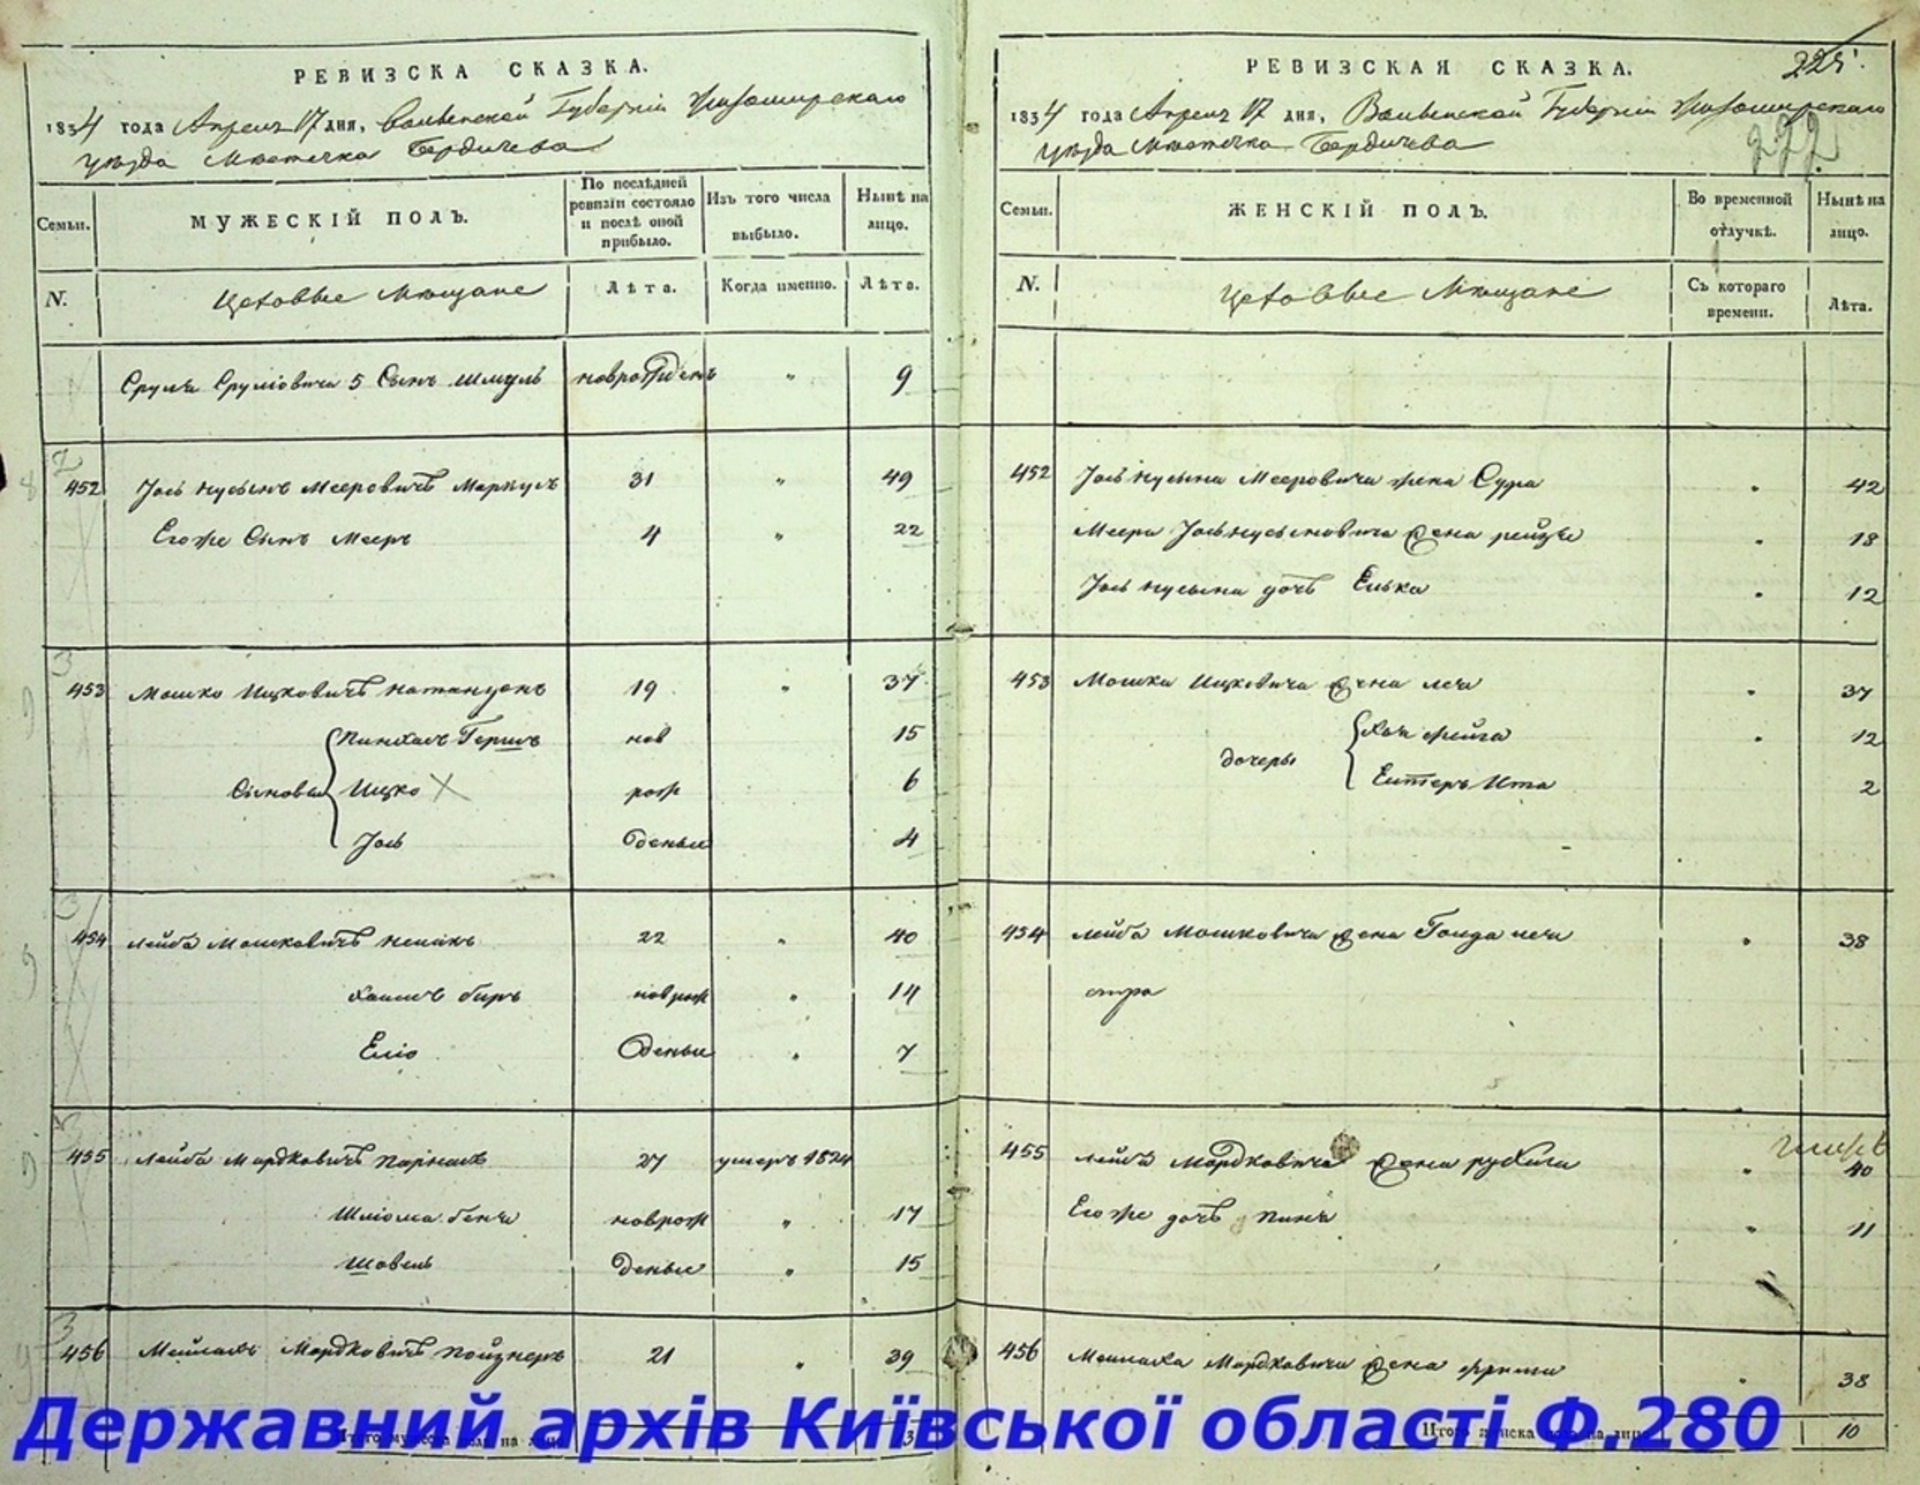 РЕВИЗСКА СКАЗКА.
1834 года Апреля 17 дня, Волынской Губернiи Житомирскаго
уѣзда Мѣстечка Бердичева
Семьи.
МУЖЕСКIЙ ПОЛЪ.
По послѣдней ревизiи состояло и послѣ оной прибыло.
Изъ того числа выбыло.
Нынѣ на лицо.
N.
Цеховые Мѣщане
Лѣта.
Когда именно.
Лѣта.
Сруля Срулiовича 5 Сынъ Шмуль новрожденъ " 9
452 Iось Нусынъ Мееровичъ 31 " 49
Егоже Сынъ Мееръ 4 " 22
453 Мошко Ицковичъ 19 " 37
Пинхасъ Гершъ нов 15
Сыновья Ицко рож 6
Iось деные 4
454 Лейба Мошковичъ 22 " 40
новрож " 14
Елiо деные " 7
455 Лейба Мордковичъ 27 умеръ 1824
Шлiома новрож " 17
Шовель деные " 15
456 Мордковичъ Пойзнеръ 21 " 39
Итого мужеска пола на лицо 3
РЕВИЗСКАЯ СКАЗКА.
225
1834 года Апреля 17 дня, Волынской Губернiи Житомирскаго
уѣзда Мѣстечка Бердичева
222
Семьи.
ЖЕНСКIЙ ПОЛЪ.
Во временной отлучкѣ.
Нынѣ на лицо.
N.
Цеховые Мѣщане
Съ котораго времени.
Лѣта.
452 Iось Нусына Мееровича жена Сура 42
Меера Iосьнусыновича жена Рейзя 18
Iось Нусына дочь Елька 12
453 Мошка Ицковича жена Лея 37
Хая Фейга 12
дочеры
Естеръ Ита 2
454 Лейба Мошковича жена Голда 38
455 Лейба Мордковича жена 40
Егоже дочь 11
456 Мордковича жена 38
Итого женска пола на лицо 10
Державний архів Київської області Ф.280